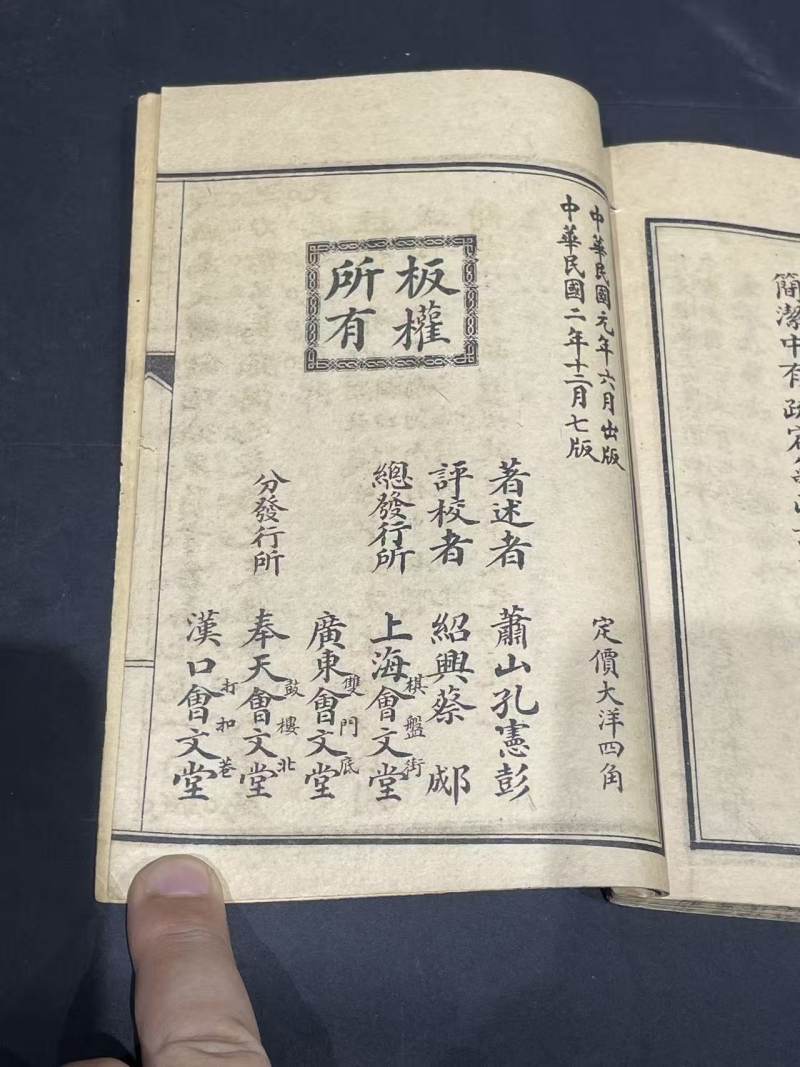 簡潔中有
中華民國元年六月出版
中華民國二年十二月七版
板權
所有
定價大洋四角
著述者 蕭山孔憲彭
評校者 紹興蔡郕
總發行所 上海棋盤街會文堂
廣東雙門底會文堂
分發行所 奉天鼓樓北會文堂
漢口打扣巷會文堂